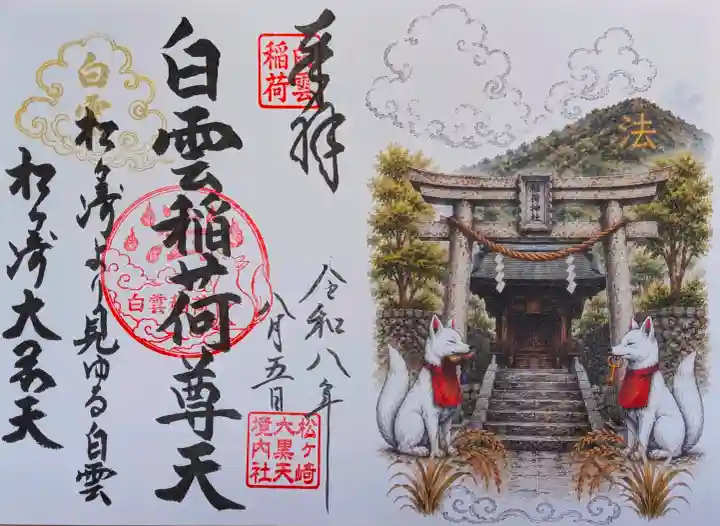 奉拝
白雲
稲荷
令和八年
八月五日
松ヶ崎
大黒天
境内社
白雲稲荷尊天
白雲稲
白雲
松ヶ崎より見ゆる白雲
松ヶ崎大黒天
法
稲荷神社